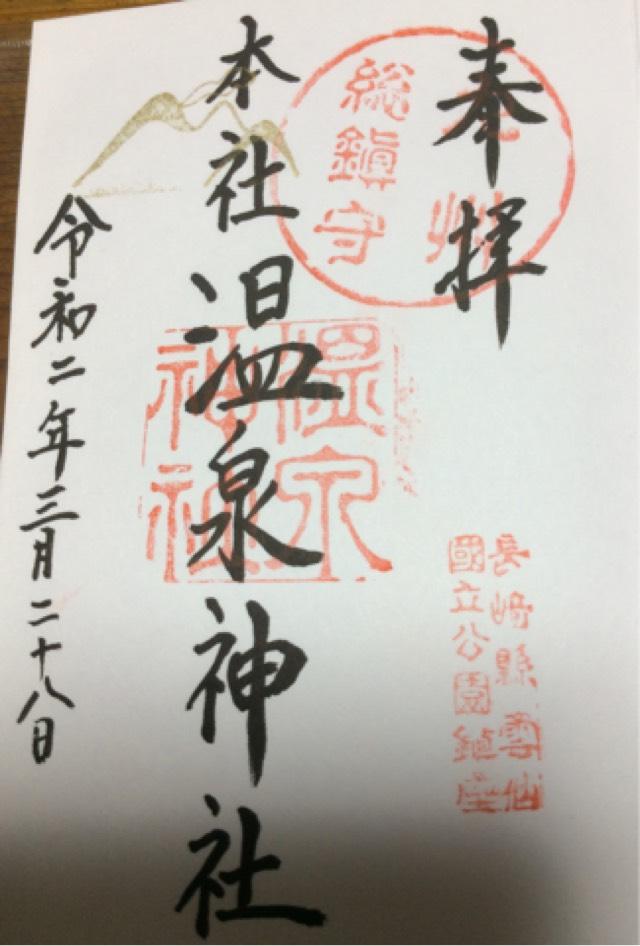 奉拝
九州
総鎭守
長﨑縣雲仙
國立公園鎭座
本社温泉神社
温泉
神社
令和二年三月二十八日